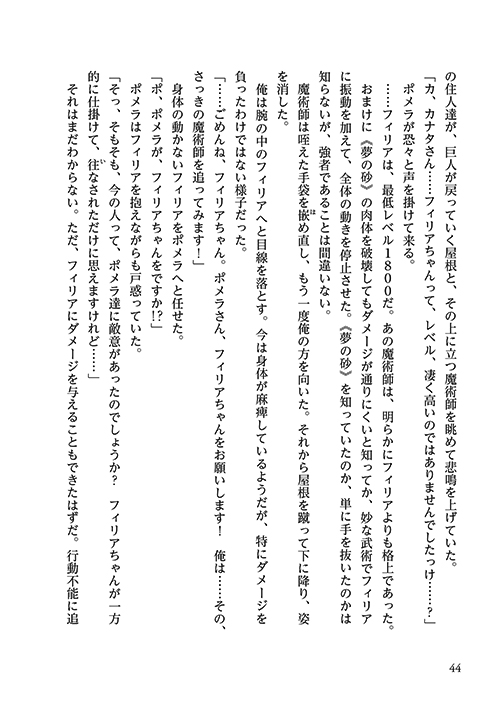 の住人達が、巨人が戻っていく屋根と、その上に立つ魔術師を眺めて悲鳴を上げていた。
「カ、カナタさん……フィリアちゃんって、レベル、凄く高いのではありませんでしたっけ……？」
ポメラが恐々と声を掛けて来る。
……フィリアは、最低レベル１８００だ。あの魔術師は、明らかにフィリアよりも格上であった。
おまけに《夢の砂》の肉体を破壊してもダメージが通りにくいと知ってか、妙な武術でフィリア
に振動を加えて、全体の動きを停止させた。《夢の砂》を知っていたのか、単に手を抜いたのかは
知らないが、強者であることは間違いない。
魔術師は咥えた手袋を嵌め直し、もう一度俺の方を向いた。それから屋根を蹴って下に降り、姿
を消した。
俺は腕の中のフィリアへと目線を落とす。今は身体が麻痺しているようだが、特にダメージを
負ったわけではない様子だった。
「……ごめんね、フィリアちゃん。ポメラさん、フィリアちゃんをお願いします！　俺は……その、
さっきの魔術師を追ってみます！」
身体の動かないフィリアをポメラへと任せた。
「ポ、ポメラが、フィリアちゃんをですか!?」
ポメラはフィリアを抱えながらも戸惑っていた。
「そっ、そもそも、今の人って、ポメラ達に敵意があったのでしょうか？　フィリアちゃんが一方
的に仕掛けて、往なされただけに思えますけれど……」
それはまだわからない。ただ、フィリアにダメージを与えることもできたはずだ。行動不能に追
44